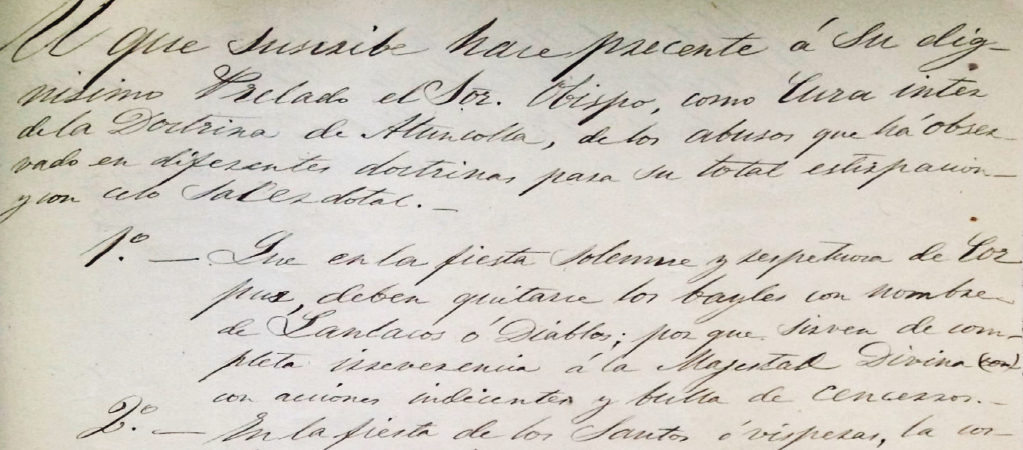 El que suscribe hace precente á Su dig-
nisimo Prelado el Sor. Obispo, como Cura inter
de la Doctrina de Atuncolla, de los abusos que há obser-
vado en diferentes doctrinas para su total estirpacion
y con celo Sacerdotal.—
1.º — Que en la fiesta solemne y respetuosa de Cor
pus, deben quitarse los bayles con nombre
de Sanlacos ó Diablos; por que sirven de com-
pleta irreverencia á la Majestad Divina (con)
con acciones indicentes y bulla de cencerros.—
2.º — En la fiesta de los Santos ó visperas, la cor-